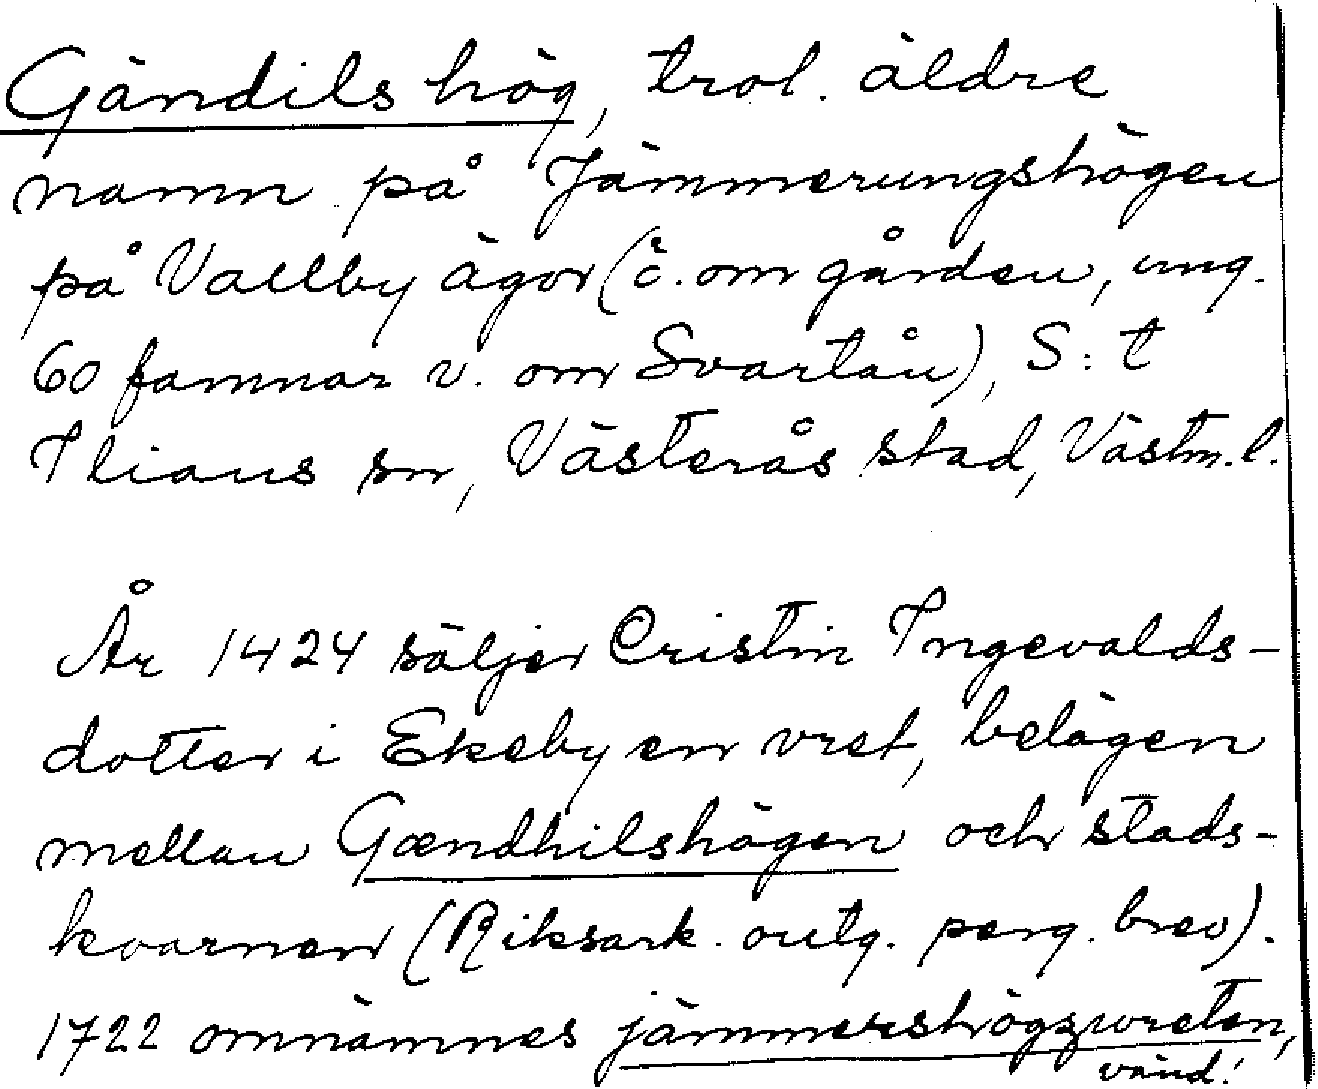 Gändils hög, trol. äldre
namn på Jämmerungshögen
på Vallby ägor (ö. om gården, ung.
60 famnar v. om Svartån), S:t
Ilians sn, Västerås stad, Västm. l.
År 1424 säljer Cristin Ingevalds-
dotter i Ekeby en vret, belägen
mellan Gændhilshögen och stads-
kvarnen (Riksark. outg. perg. brev).
1722 omnämnes jämmershögzwreten,
vänd!